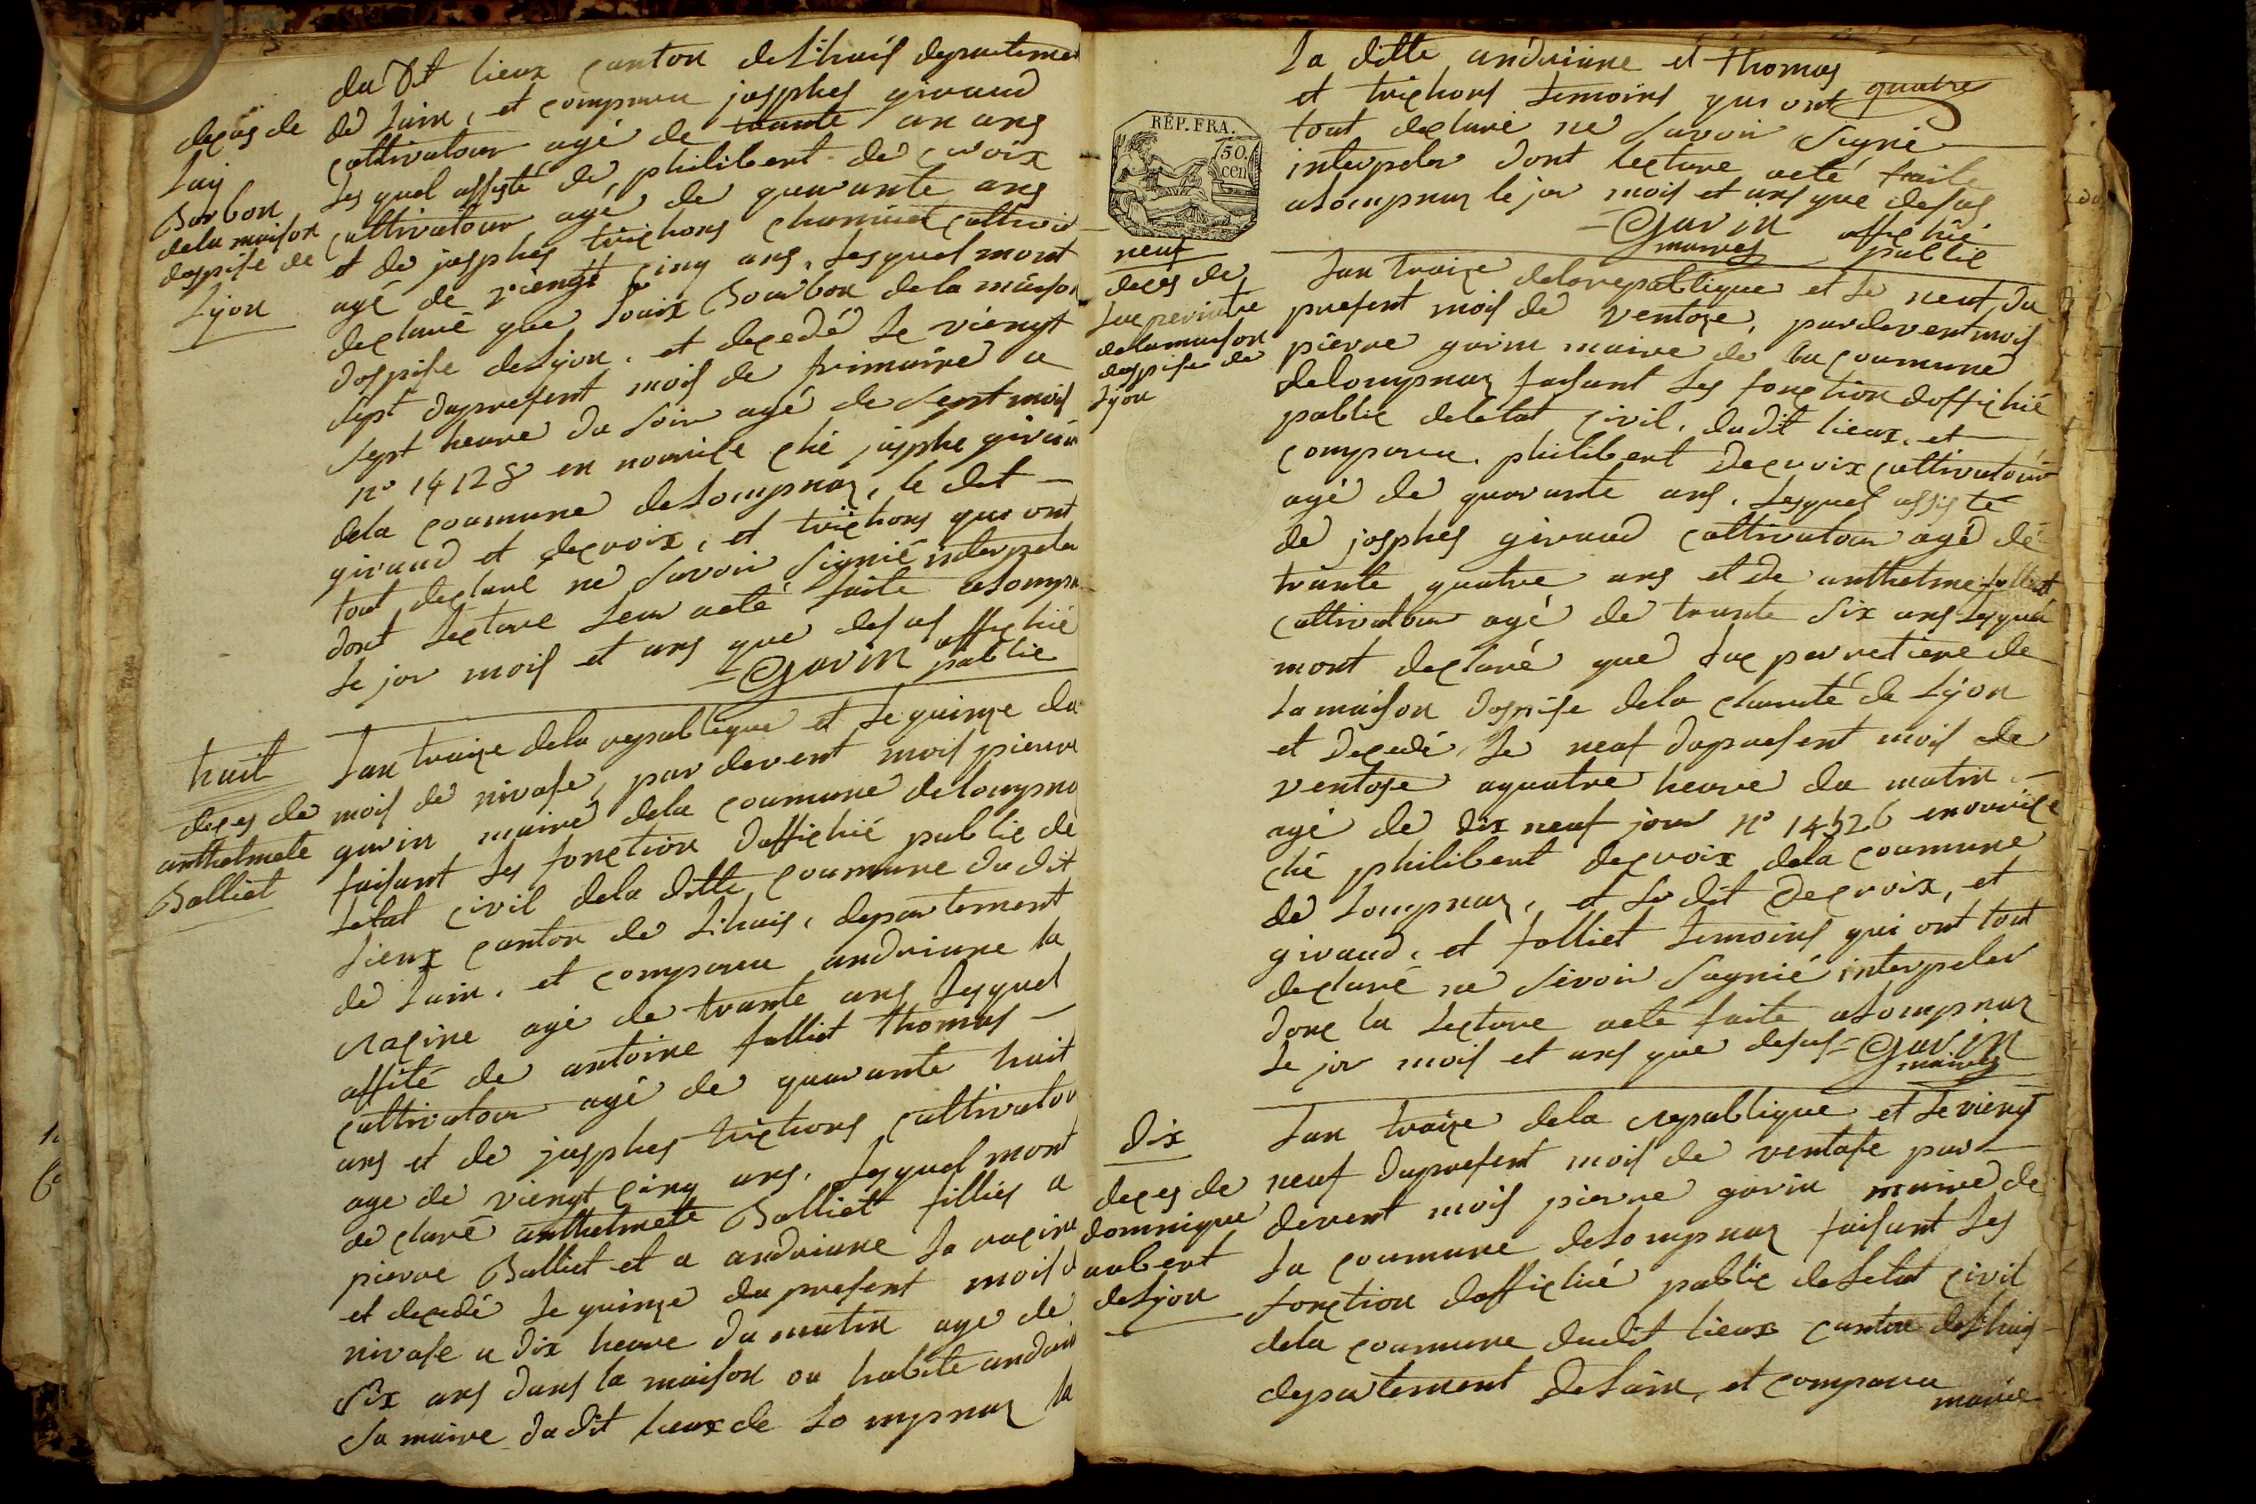 du dt lieux canton de Lhuis departemen
deces de
Luij
Borbon
dela maison
dospise de
Lyon
de Lain, et comparu josphes giraud
cultivatour agé de trante un ans
les quel assisté de philibert de croix
cultivatour agé de quarante ans
et de josphes trichons charniet cultivat
agé de viengt cinq ans, lesquel mont
declaré que Louix Bourbon dela maison
dospise de Lyon, et decedé le viengt
sept du present mois de frimaire a
sept heure du soir agé de sept mois
n° 14128 en nourice ché josphe giraud
dela coumune de Lompnaz, le dit
giraud et decroix, et trichons qui ont
tout declaré ne savoir signié interpeler
dont lecture leur a eté faite a Lompn
le jor mois et ans que desus
= Gavin affichié public
huit
deces de
anthelmete
Balliet
Lan traize dela republique et le quinze du
mois de nivose, par devent mois pierre
gavin maire dela coumune de lompna
faisant les fonction daffichié public de
letat civil dela ditte coumune du dit
lieux canton de Lhuis, departement
de Lain, et comparu andriane la
racine agé de trante ans lesquel
assité de antoine folliet thomas
cultivatour agé de quarante huit
ans et de josphes trichons cultivatou
age de viengt cinq ans, lesquel mont
declaré anthelmete Balliet fillies a
pierre Balliet et a andriane la racine
et decedé le quinze du present mois d
nivose a dix heure du matin age de
six ans dans la maison ou habite andria
sa maire du dit lieux de Lompnaz la
la ditte andriane et thomas
et trichons temoins qui ont quatre
tout declaré ne savoir signé
interpeler dont lecture a eté faite
a Lompnaz le jor mois et ans que desus
= Gavin maires affichié public
RÉP. FRA.
50. cen
neuf
deces de
Luc perretire
dela maison
dospise de
Lyon
Lan traize dela republique et le neuf du
present mois de ventoze, par devent mois
pierre gavin maire de la coumune
de Lompnaz faisant les fonction daffichié
public de letat civil, dudit lieux, et
comparu philibert decroix cultivatour
agé de quarante ans, lesquel assisté
de josphes giraud cultivatour agé de
trante quatre ans et de anthelme folliet
cultivatour agé de trante six ans lesquel
mont declaré que Luc perretiere de
la maison dospise dela charité de Lyon
et decedé le neuf du present mois de
ventose a quatre heure du matin
agé de dix neuf jour n° 14526 en nourice
ché philibert decroix dela coumune
de Lompnaz, et le dit decroix, et
giraud, et folliet temoins qui ont tout
declaré ne sevoir sagnié interpeler
donc la lecture a eté faite a Lompnaz
le jor mois et ans que desus = Gavin maires
dix
deces de
domnique
aubert
de Lyon
Lan traize dela republique et le viengt
neuf du present mois de ventose par
devent mois pierre gavin maire de
la coumune de Lompnaz faisant les
fonction daffichié public de letat civil
dela coumune dudit lieux canton de Lhuis
departement de Lain, et comparu
marie